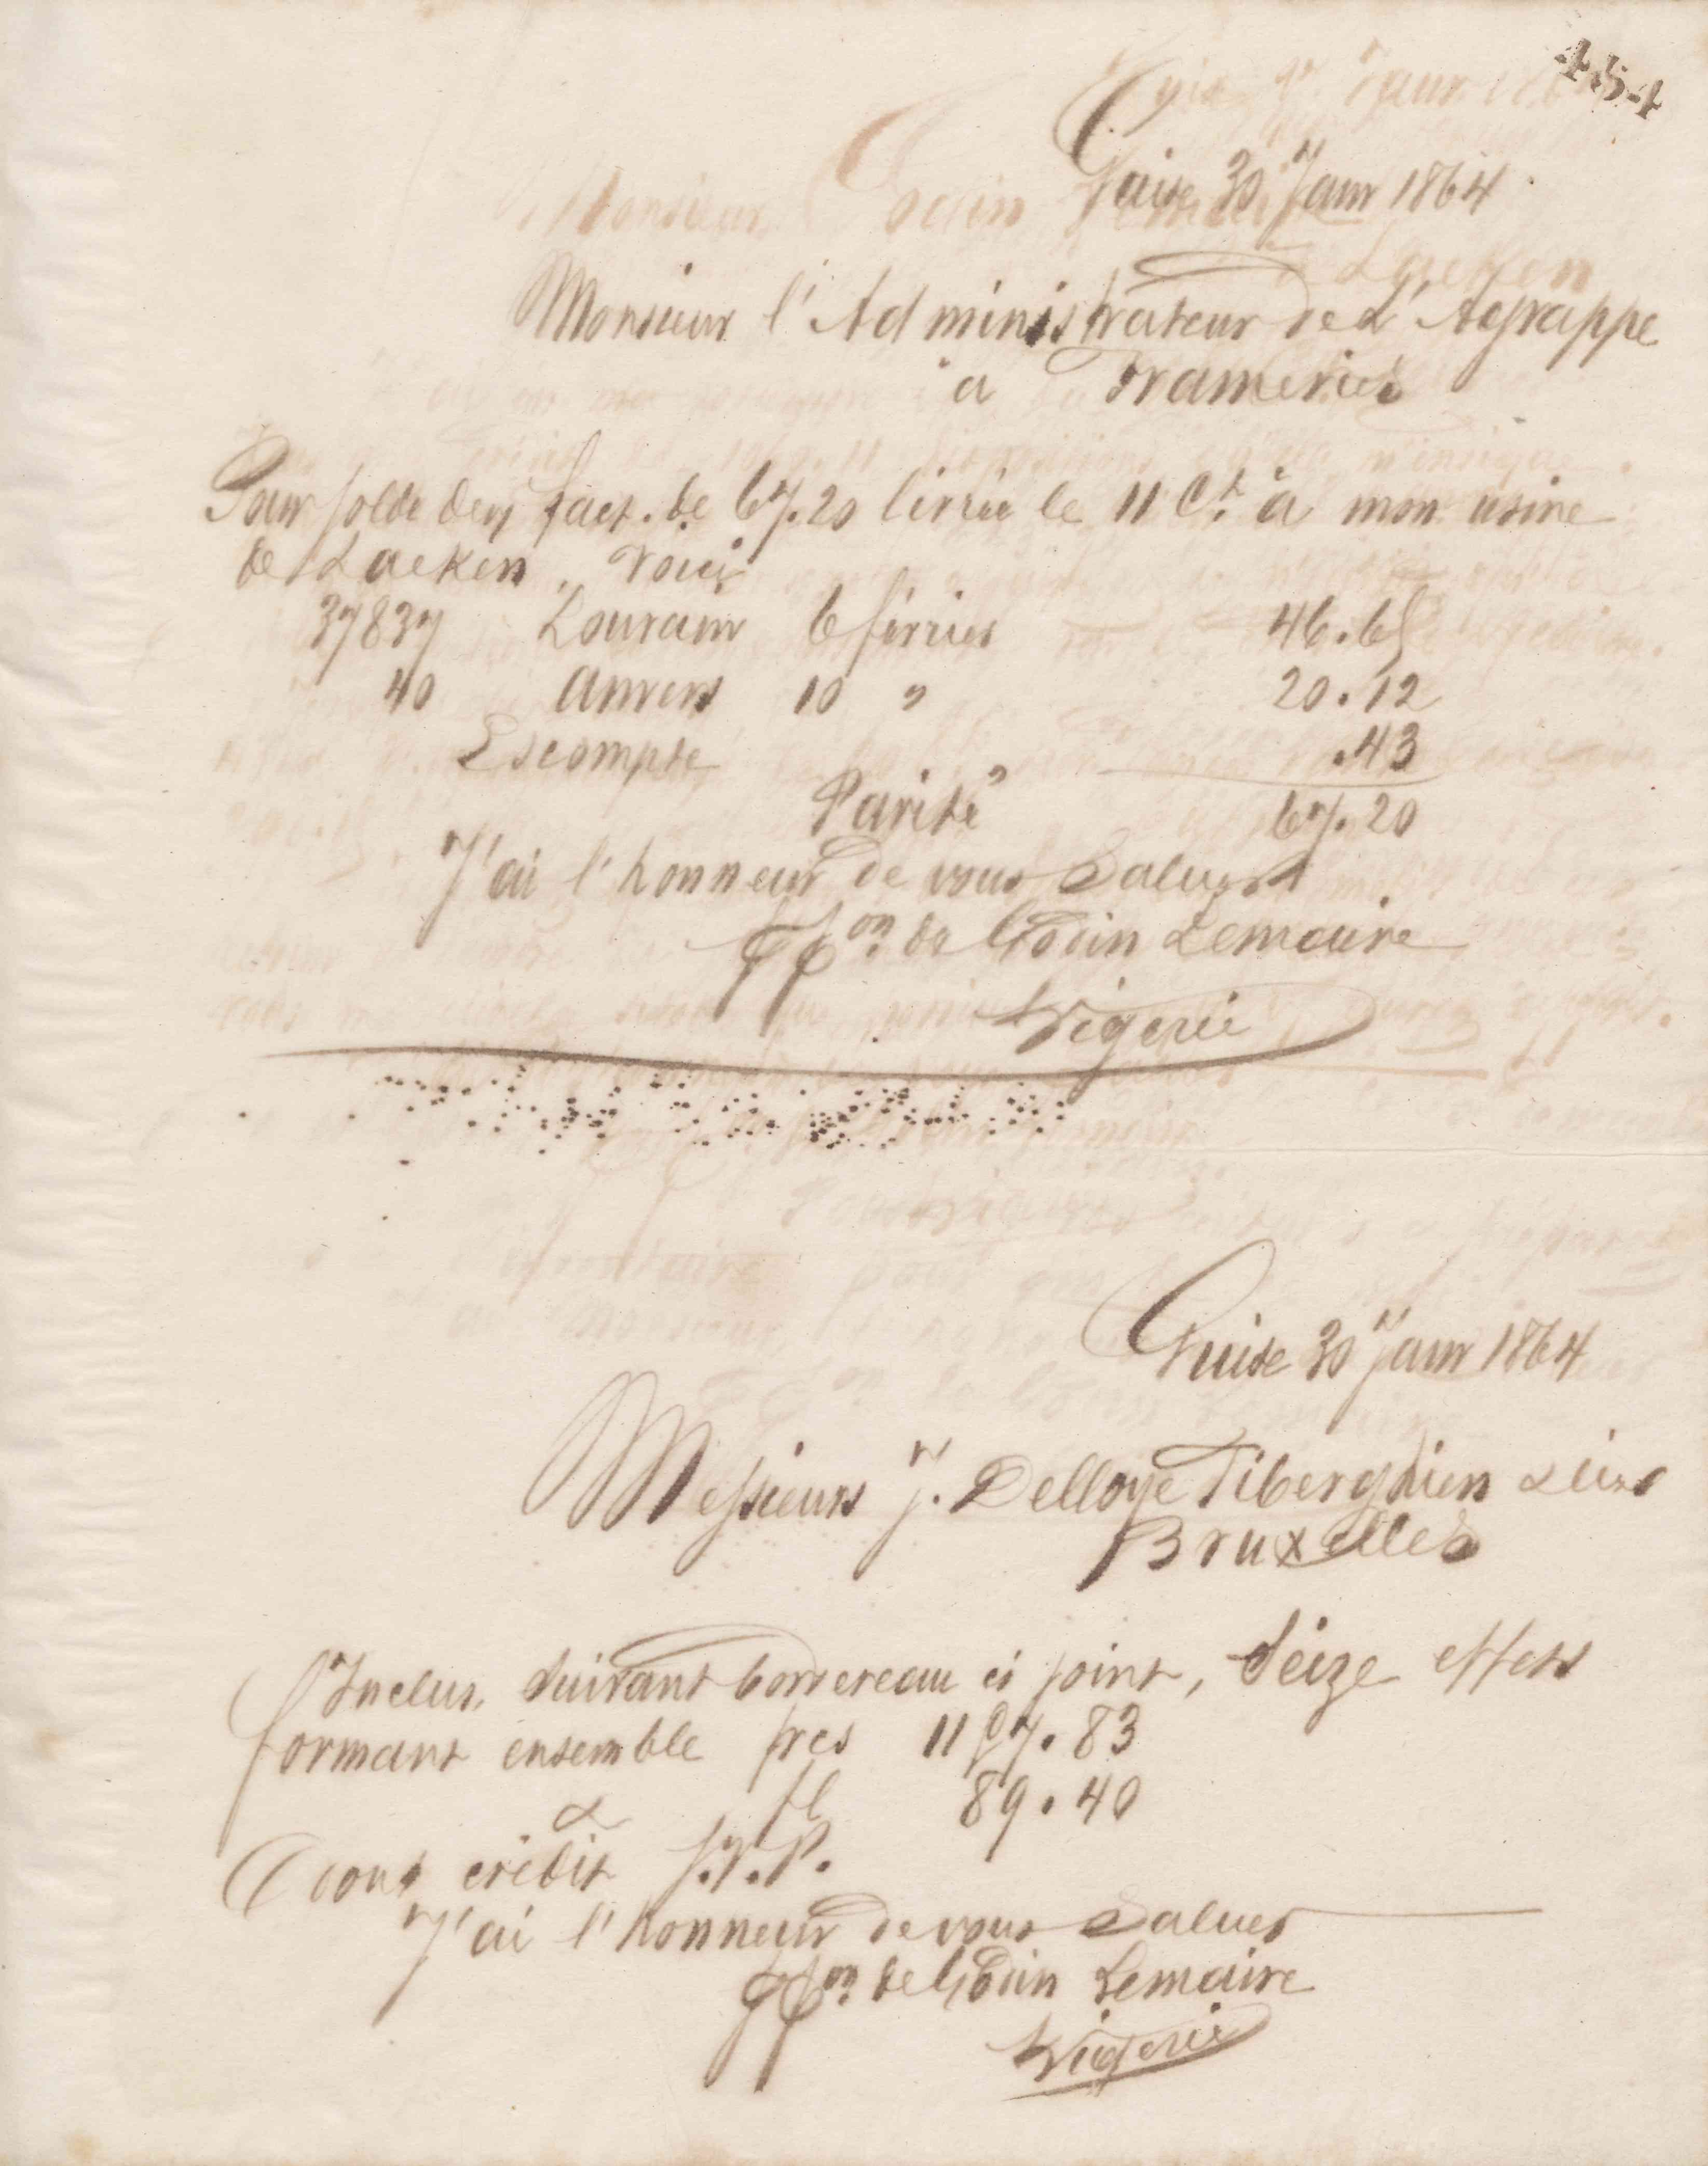 454
Guise 30 Janr 1864
Monsieur l'Administrateur de L'Agrappe
a Frameries
Pour solde de v fact. de 67.20 livrée le 11 Ct. à mon usine
de Laeken, voici
37837 Louvain 6 février 46.65
40 Anvers 10 " 20.12
Escompte .43
Parité 67.20
J'ai l'honneur de vous Saluer
de Godin Lemaire
Guise 30 Janr 1864
Messieurs J. Delloye Tiberghien &
Bruxelles
Inclus, suivant bordereau ci joint, Seize effets
formant ensemble frcs 1157.83
& fl 89.40
A vous crédit S.V.P.
J'ai l'honneur de vous Saluer
de Godin Lemaire